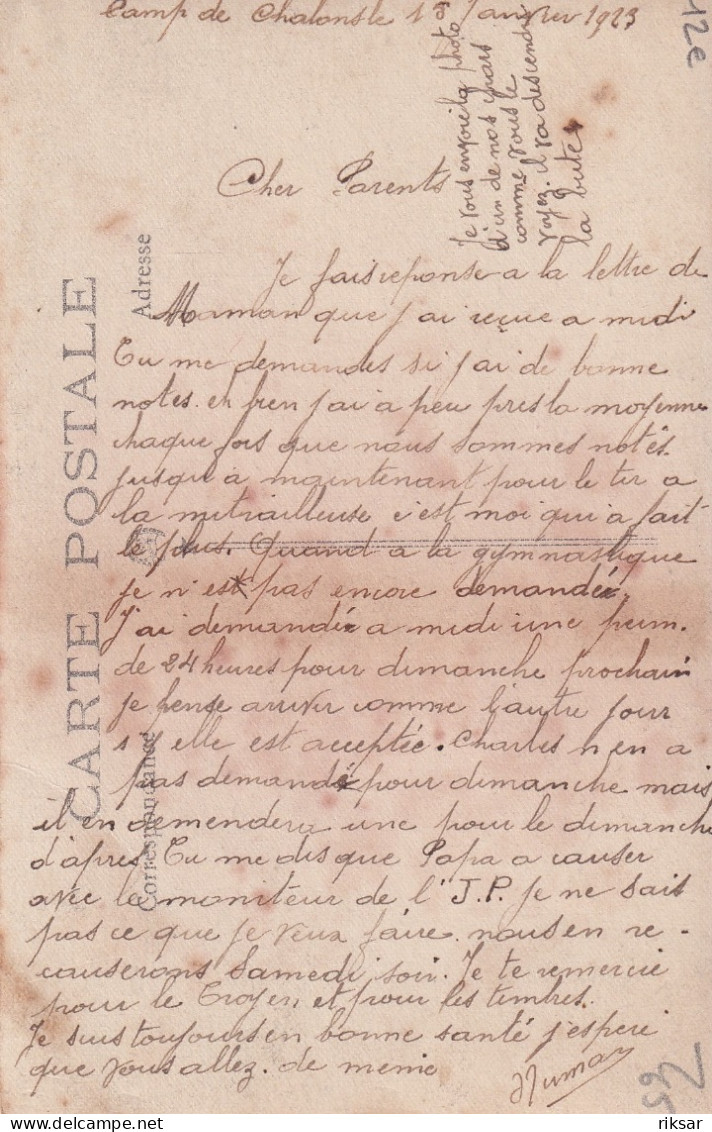 Camp de Chalons le 18 Janvier 1923
12e
Je vous envoie la photo
d'un de nos chars
comme vous le
voyez. il va descendre
la bute
Cher Parents
Je fais reponse a la lettre de
Maman que j'ai reçue a midi
Tu me demandes si j'ai de bonne
notes. eh bien j'ai a peu pres la moyenne
chaque fois que nous sommes notés.
jusqu'a maintenant pour le tir a
la mitrailleuse c'est moi qui a fait
le plus. Quand a la gymnastique
je n'est pas encore demandée.
J'ai demandé a midi une perm.
de 24 heures pour dimanche prochain
je pense arriver comme l'autre jour
s'y elle est acceptée. Charles n'en a
pas demandé pour dimanche mais
il en demendera une pour le dimanche
d'apres. Tu me dis que Papa a causer
avec le moniteur de l'J.P. Je ne sais
pas ce que je veux faire. nous en re-
causerons Samedi soir. Je te remercie
pour le Troyen et pour les timbres.
Je suis toujours en bonne santé j'espere
que vous allez. de meme
CARTE POSTALE
Correspondance
Adresse
riksar